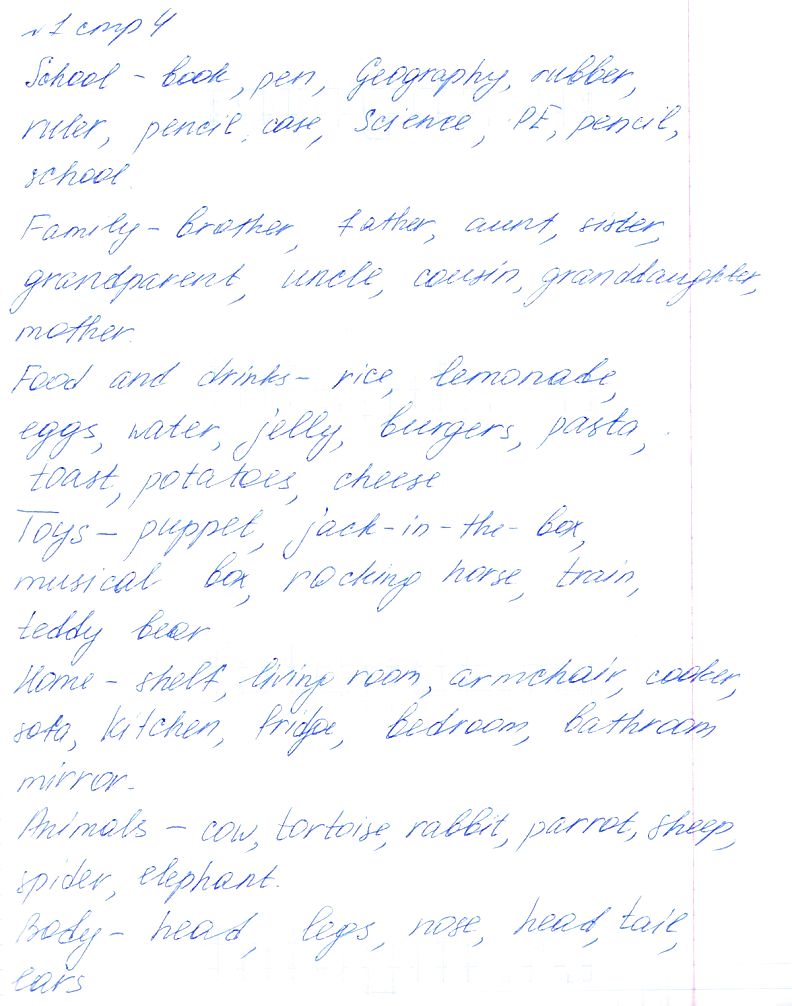 №1 стр 4
School - book, pen, Geography, rubber,
ruler, pencil case, Science, PE, pencil,
school.
Family - brother, father, aunt, sister,
grandparent, uncle, cousin, granddaughter,
mother.
Food and drinks - rice, lemonade,
eggs, water, jelly, burgers, pasta,
toast, potatoes, cheese
Toys - puppet, jack-in-the-box,
musical box, rocking horse, train,
teddy bear
Home - shelf, living room, armchair, cooker,
sofa, kitchen, fridge, bedroom, bathroom
mirror.
Animals - cow, tortoise, rabbit, parrot, sheep,
spider, elephant.
Body - head, legs, nose, head, tail,
ears